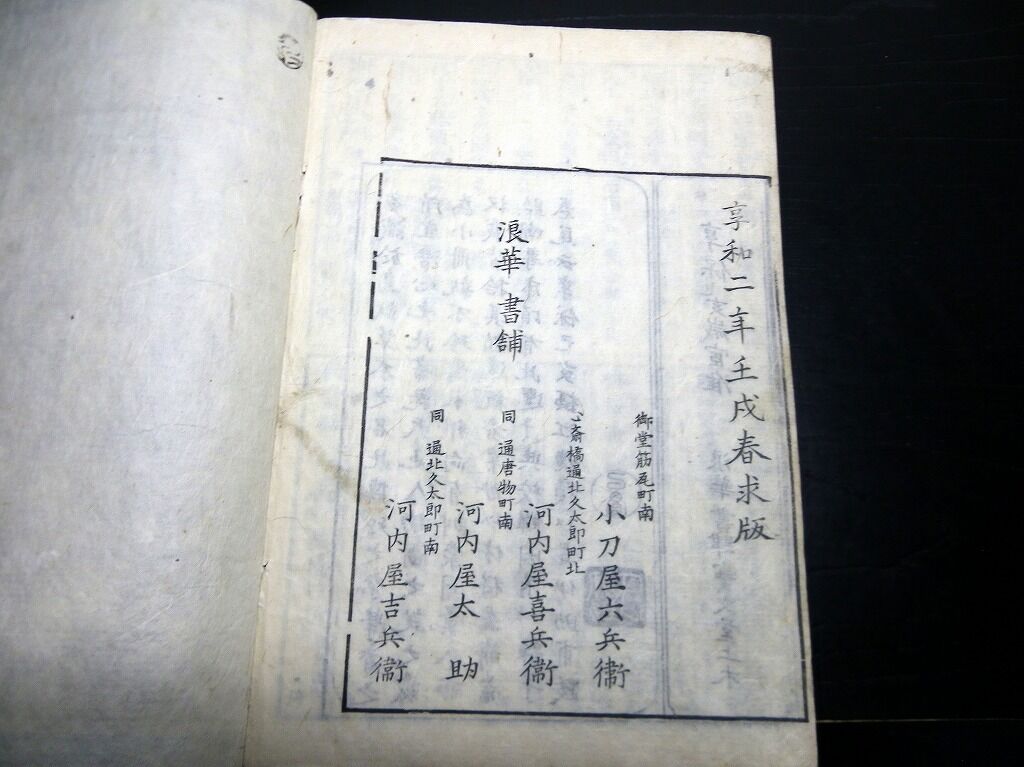 享和二年壬戌春求版
御堂筋尾町南
小刀屋六兵衞
心斎橋通北久太郎町北
河内屋喜兵衞
浪華 書舗
同 通唐物町南
河内屋太助
同 通北久太郎町南
河内屋吉兵衞